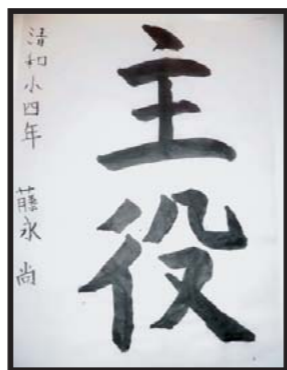 主役
清和小四年 藤永 尚